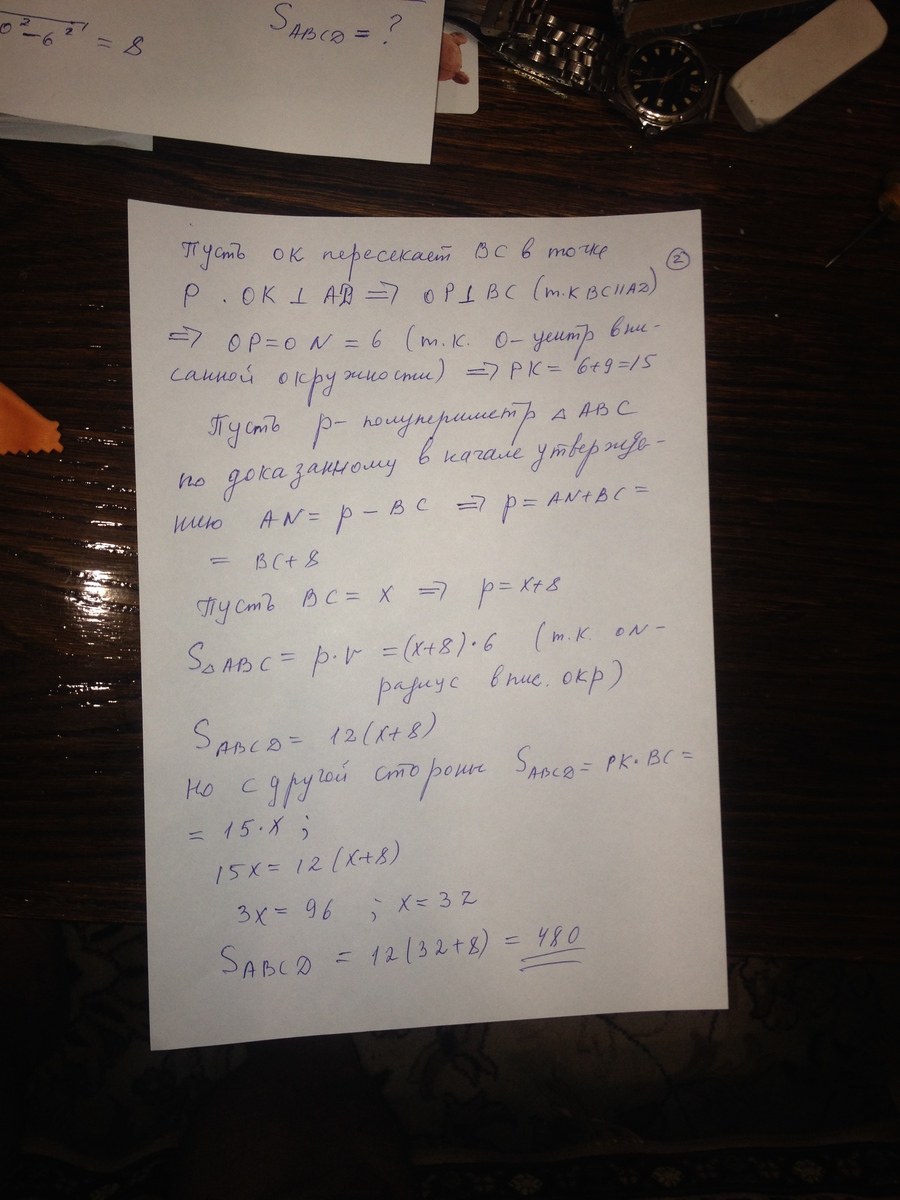 0² - 6² = 8
S ABCD = ?
②
Пусть OK пересекает BC в точке
P . OK ⊥ AD => OP ⊥ BC (т.к BC || AD)
=> OP = ON = 6 (т.к. O - центр впи-
санной окружности) => PK = 6+9=15
Пусть p - полупериметр △ ABC
по доказанному в начале утвержде-
нию AN = p - BC => p = AN + BC =
= BC + 8
Пусть BC = x => p = x+8
S△ABC = p·r = (x+8)·6 (т.к. ON -
радиус впис. окр)
S ABCD = 12(x+8)
Но с другой стороны S ABCD = PK·BC =
= 15·x ;
15x = 12(x+8)
3x = 96 ; x = 32
S ABCD = 12(32+8) = 480